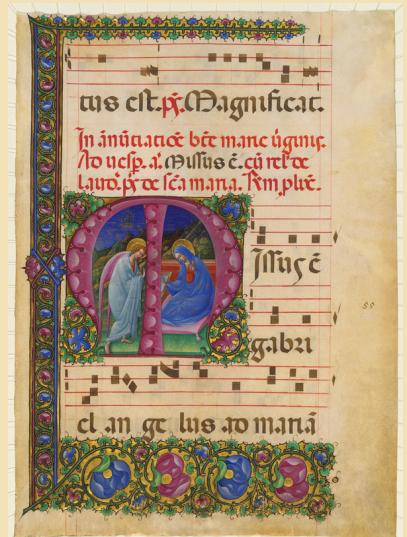 tus est. p̄s. Magnificat.
In ānūtiatiōe bt̄e marie v̄ginis.
Ad uesp̄. a͞. Missus ē. cū rel. de
laud. p̄s de sc̄a maria. Sem̄ plic̄.
Missus ē
gabri
el an ge lus ad mariā
55